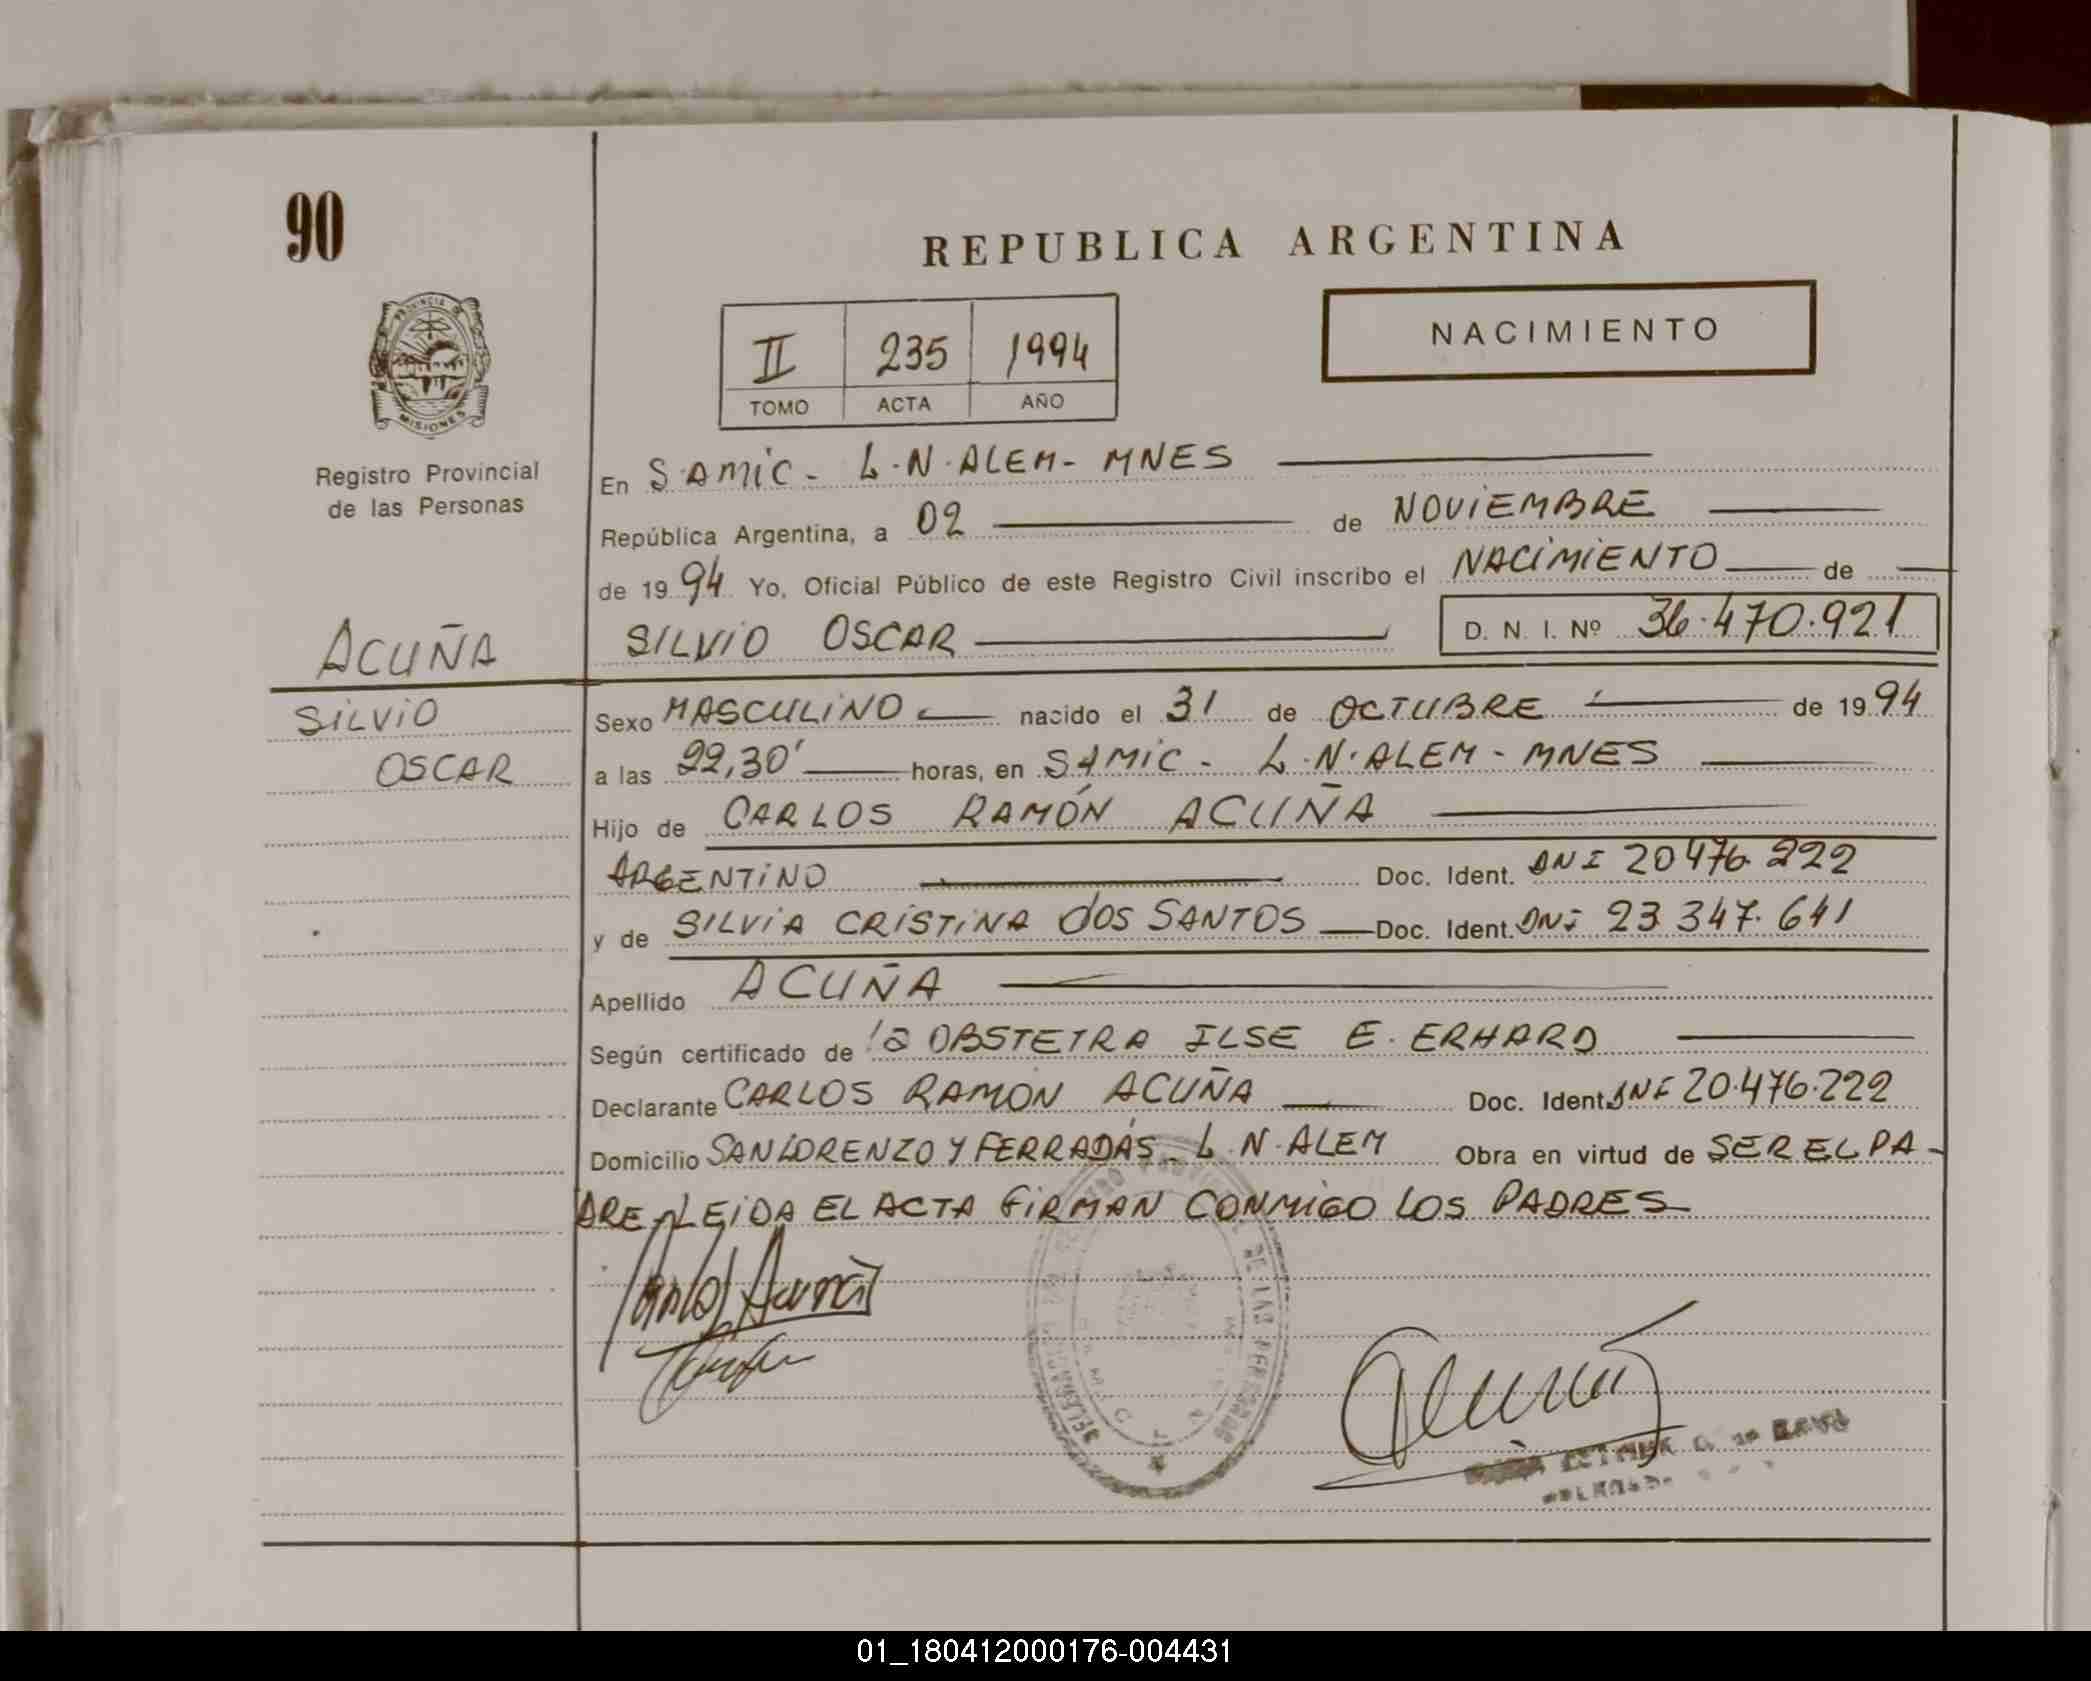 90
REPUBLICA ARGENTINA
NACIMIENTO
II 235 1994
TOMO ACTA AÑO
PROVINCIA DE
MISIONES
Registro Provincial
de las Personas
En S.AMIC - L.N.ALEM - MNES
República Argentina, a 02 de NOVIEMBRE
de 1994 Yo, Oficial Público de este Registro Civil inscribo el NACIMIENTO de
SILVIO OSCAR D. N. I. Nº 36.470.921
ACUÑA
SILVIO
OSCAR
Sexo MASCULINO nacido el 31 de OCTUBRE de 1994
a las 22,30' horas, en SAMIC - L.N.ALEM - MNES
Hijo de CARLOS RAMÓN ACUÑA
ARGENTINO Doc. Ident. DNI 20476.222
y de SILVIA CRISTINA dOS SANTOS Doc. Ident. DNI 23.347.641
Apellido ACUÑA
Según certificado de la OBSTETRA ILSE E. ERHARD
Declarante CARLOS RAMÓN ACUÑA Doc. Ident. DNI 20.476.222
Domicilio SAN LORENZO Y FERRADÁS - L.N.ALEM Obra en virtud de SER EL PA-
DRE - LEIDA EL ACTA FIRMAN CONMIGO LOS PADRES
Carlos Acuña
DE LAS PERSONAS
01_180412000176-004431